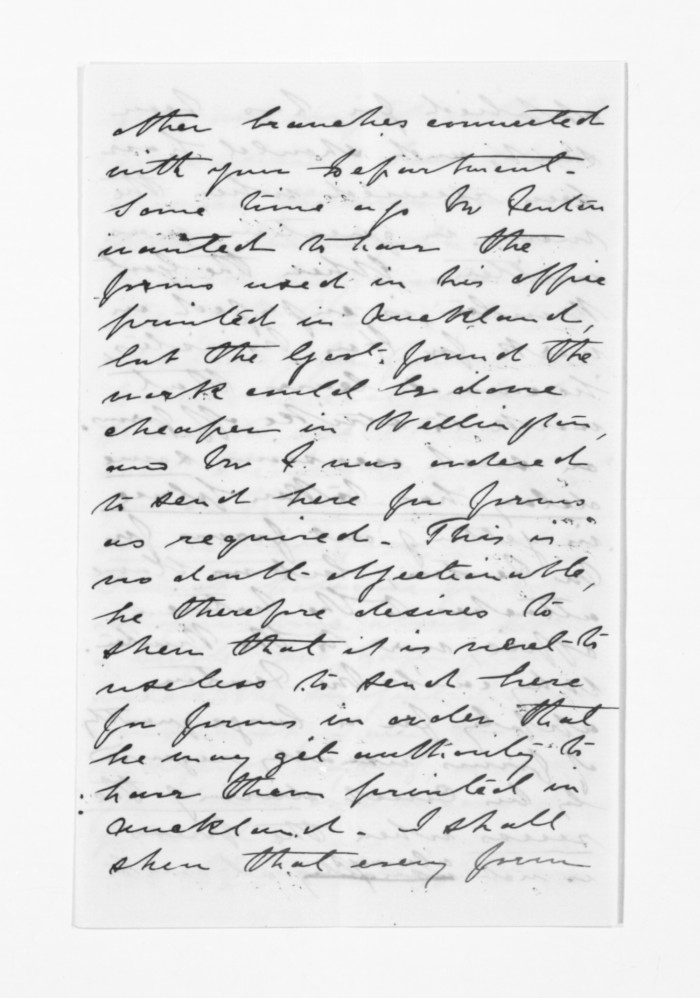 other branches connected
with your Department.
Some time ago Mr Fenton
wanted to have the
forms used in his office
printed in Auckland,
but the Govt. found the
work could be done
cheaper in Wellington,
and Mr F. was ordered
to send here for forms
as required. This is
no doubt objectionable,
he therefore desires to
shew that it is next to
useless to send here
for forms in order that
he may get authority to
have them printed in
Auckland. I shall
shew that every form